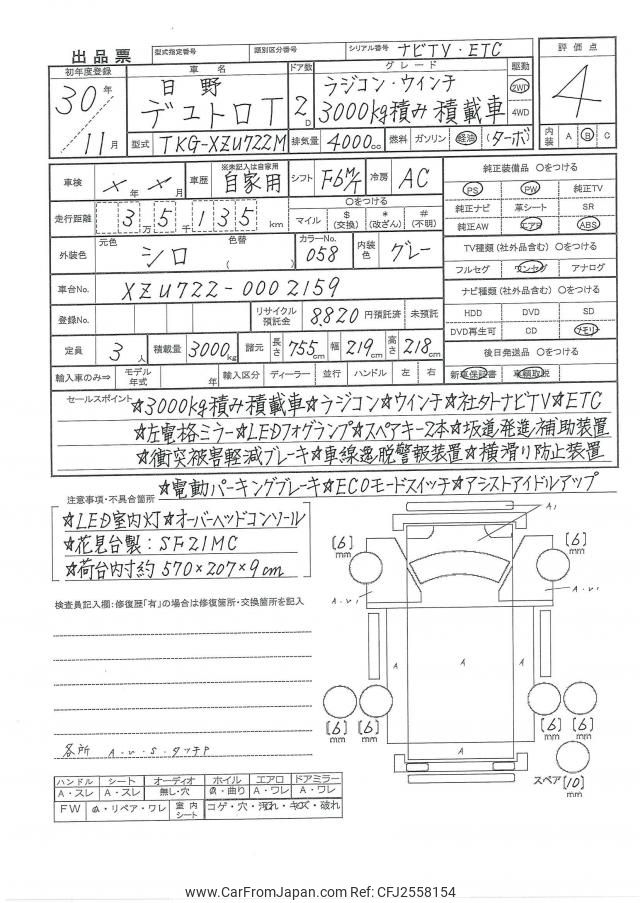 出品票
型式指定番号 類別区分番号 シリアル番号 ナビTV・ETC
評価点
4
初年度登録 車名 ドア数 グレード 駆動
30年 日野 2D ラジコン・ウインチ 2WD
11月 デュトロT 3000kg積み積載車 4WD
型式 TKG-XZU722M 排気量 4000cc 燃料 ガソリン 軽油 (ターボ)
内装 A B C
車検 ×年×月 車歴 ※未記入は自家用 自家用 シフト F6M/T 冷房 AC
純正装備品 〇をつける
PS PW 純正TV
純正ナビ 革シート SR
純正AW エアB ABS
走行距離 3万5千135km
〇をつける
マイル $(交換) *(改ざん) #(不明)
外装色 元色 シロ 色替 ( ) カラーNo. 058 内装色 グレー
TV種類(社外品含む) 〇をつける
フルセグ ワンセグ アナログ
車台No. XZU722-0002159
ナビ種類(社外品含む) 〇をつける
HDD DVD SD
DVD再生可 CD メモリー
登録No. リサイクル預託金 8.820円預託済 未預託
定員 3人 積載量 3000kg 諸元 長さ 755cm 幅 219cm 高さ 218cm
後日発送品 〇をつける
新車保証書 車輌取説
輸入車のみ⇒ モデル年式 年 輸入区分 ディーラー 並行 ハンドル 左 右
セールスポイント ☆3000kg積み積載車☆ラジコン☆ウインチ☆社外ナビTV☆ETC
☆左電格ミラー☆LEDフォグランプ☆スペアキー2本☆坂道発進補助装置
☆衝突被害軽減ブレーキ☆車線逸脱警報装置☆横滑り防止装置
☆電動パーキングブレーキ☆ECOモードスイッチ☆アシストアイドルアップ
注意事項・不具合箇所
☆LED室内灯☆オーバーヘッドコンソール
☆花見台製:SF21MC
☆荷台内寸約570×207×9cm
検査員記入欄:修復歴「有」の場合は修復箇所・交換箇所を記入
各所 A・U・S・タッチP
A1
[6]mm [6]mm
A・U1 A・U1
A A A
A
[6]mm [6]mm [6]mm [6]mm
スペア[10]mm
ハンドル シート オーディオ ホイル エアロ ドアミラー
A・スレ A・スレ 無し・穴 A・曲り A・ワレ A・ワレ
FW A・リペア・ワレ 室内シート コゲ・穴・汚れ・キズ・破れ
www.CarFromJapan.com Ref: CFJ2558154